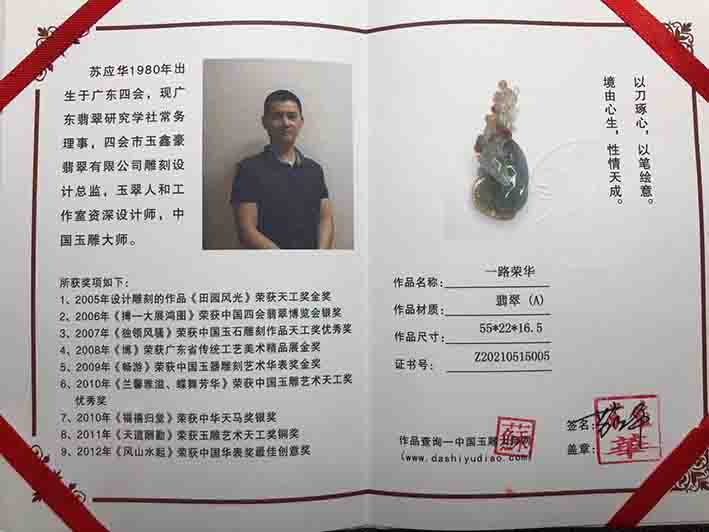 苏应华1980年出
生于广东四会，现广
东翡翠研究学社常务
理事，四会市玉鑫豪
翡翠有限公司雕刻设
计总监，玉翠人和工
作室资深设计师，中
国玉雕大师。
所获奖项如下：
1、2005年设计雕刻的作品《田园风光》荣获天工奖金奖
2、2006年《搏一大展鸿图》荣获中国四会翡翠博览会银奖
3、2007年《独领风骚》荣获中国玉石雕刻作品天工奖优秀奖
4、2008年《博》荣获广东省传统工艺美术精品展金奖
5、2009年《畅游》荣获中国玉器雕刻艺术华表奖金奖
6、2010年《兰馨雅溢、蝶舞芳华》荣获中国玉雕艺术天工奖
优秀奖
7、2010年《福禧归堂》荣获中华天马奖银奖
8、2011年《天道酬勤》荣获玉雕艺术天工奖铜奖
9、2012年《风山水起》荣获中国华表奖最佳创意奖
以刀琢心，以笔绘意。
境由心生，性情天成。
作品名称：一路荣华
作品材质：翡翠（A）
作品尺寸：55*22*16.5
证书号：Z20210515005
作品查询—中国玉雕大师网
(www.dashiyudiao.com)
蘇
签名：
盖章：
華